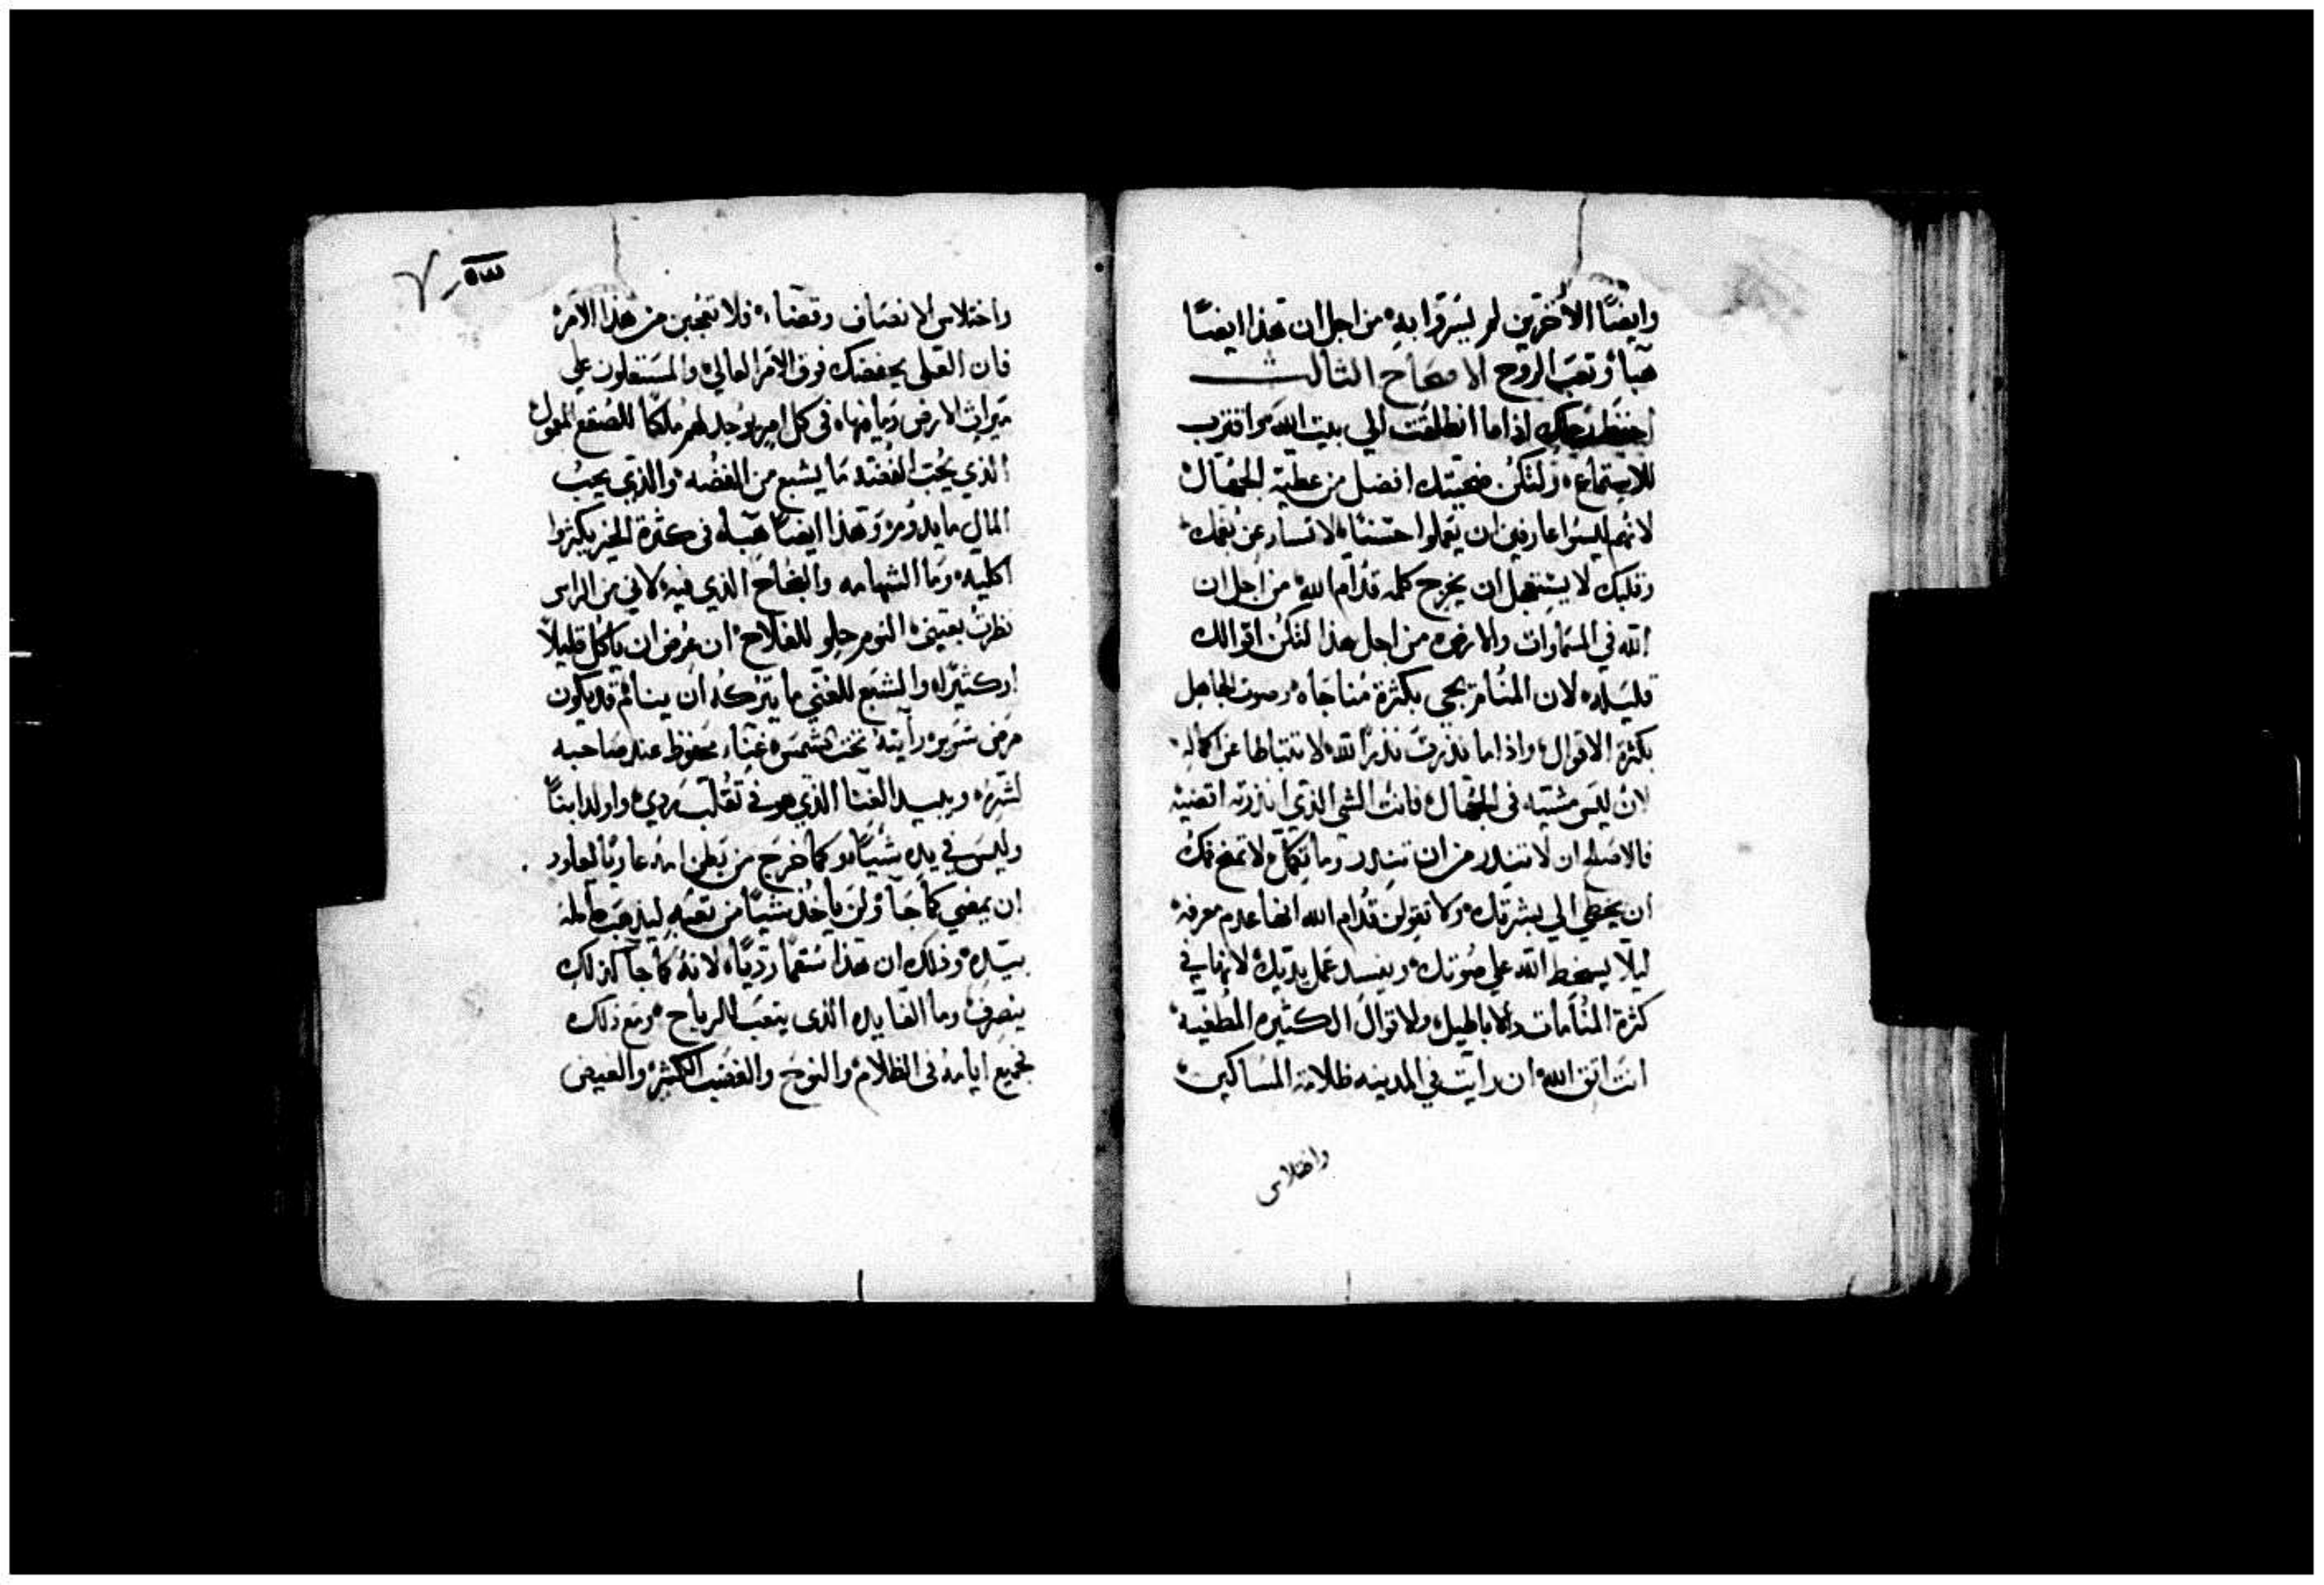 وايضًا الآخرين لم يسروا به من اجل ان هذا ايضًا
هبأ وتعب الروح الاصحاح الثالث
احفظ رجلك اذا ما انطلقت الي بيت الله واقترب
للاستماع ولتكن ضحيتك افضل من عطية الجهال
لانهم ليسوا عارفين ان يعملوا حسنًا لا تسارع بفمك
وقلبك لا يستعجل ان يخرج كلمه قدام الله من اجل ان
الله في السماوات والارض من اجل هذا لتكن اقوالك
قليله لان المنام يجي بكثرة مناجاه وصوت الجاهل
بكثرة الاقوال واذا ما نذرت نذرًا لله لا تتباطا عن اكماله
لان ليس مشيه في الجهال فانت الشي الذي انذرته اقضيه
فالاصلح ان لا تنذر من ان تنذر وما تكمل لا تمنح فمك
ان يخطي الي بشرتك ولا تقولن قدام الله انها عدم معرفه
ليلا يسخط الله علي صوتك ويفسد عمل يديك لانها في
كثرة المنامات والاباطيل والاقوال الكثيره المطغيه
انت اتق الله ان رايت في المدينه ظلامة المساكين
واختلاس
واختلاس الانصاف وقضاء فلا تعجبن من هذا الامر
فان العلي يحفظك فوق الامر العالي والمستعلون علي
ميراث الارض وما فيها في كل امر يوجد لهم ملكًا للصقع المعمول
الذي يحب الفضه ما يشبع من الفضه والذي يحب
المال ما يدوم وهذا ايضًا هبأ في كثرة الخير يكثروا
اكليه وما الشهامه والنجاح الذي فيه لاني من الراس
نظرت بعيني النوم حلو للفلاح ان عرض ان ياكل قليلاً
او كثيرًا والشبع للغني ما يتركه ان ينام قد يكون
مرض شرير رآيته تحت الشمس غناء محفوظ عند صاحبه
لشره ويبيد الغنا الذي هو في تقلب ردي واولد ابنًا
وليس في يده شيًا وكما خرج من بطن امه عاريًا يعاود
ان يمضي كما جآ ولن ياخذ شيًا من تعبه ليذهب
بيده وذلك ان هذا سقمًا رديًا لانه كما جآ كذلك
ينصرف وما الفايده الذي يتعب للرياح ومع ذلك
جميع ايامه في الظلام والنوح والغضب الكثير والغيض